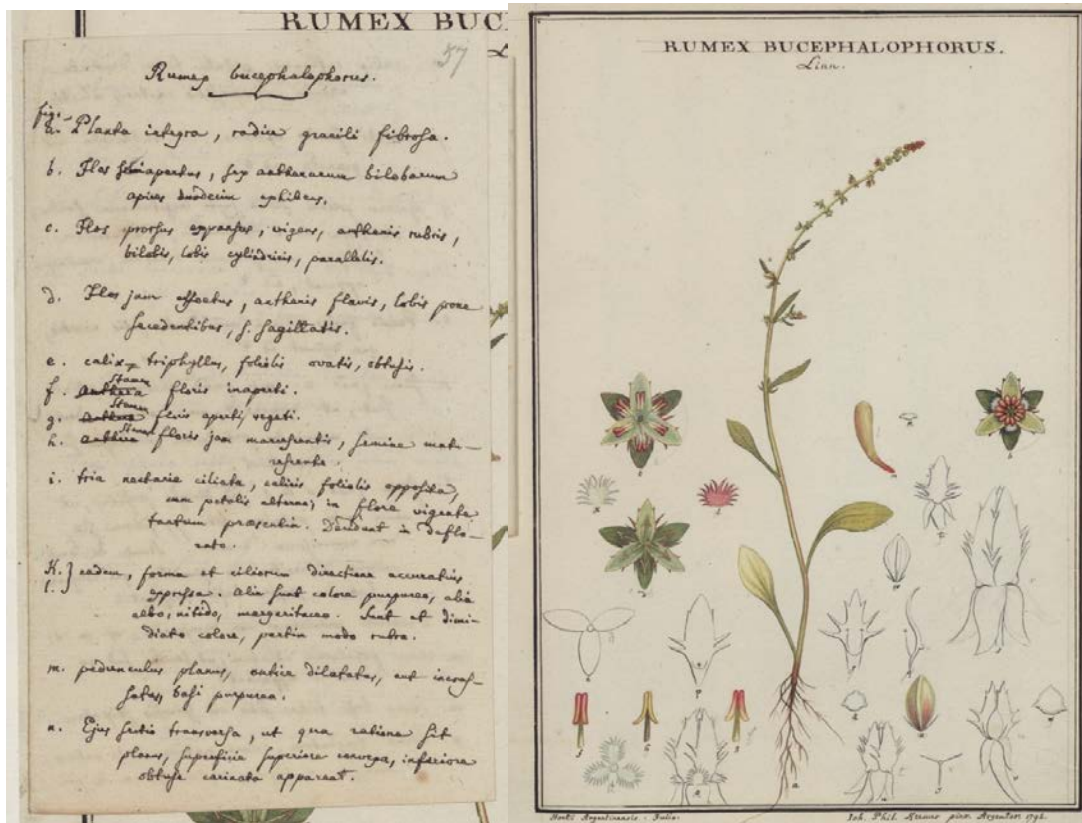 RUMEX BUC
L
57
Rumex bucephalophorus.
fig.
a. Planta integra, radice gracili fibrosa.
b. Flos semiapertus, sex antherarum bilobarum
apices duodecim exhibens.
c. Flos prorsus expansus, vigens, antheris rubris,
bilobis, lobis cylindricis, parallelis.
d. Flos jam effoetus, antheris flavis, lobis prone
secedentibus, s. sagittatis.
e. calix triphyllus, foliolis ovatis, obtusis.
Stamen
f. anthera floris inaperti.
Stamen
g. anthera floris aperti, vegeti.
Stamen
h. anthera floris jam marcescentis, semine matu-
rescente.
i. tria nectaria ciliata, calicis foliolis opposita,
cum petalis alterna; in flore vigente
tantum praesentia. Decidunt in deflo-
rato.
K. } eadem, forma et ciliorum directione accuratius
l.
expressa. Alia sunt colore purpureo, alia
albo, nitido, margaritaceo. Sunt et dimi-
diato colore, partim modo rubro.
m. pedunculus planus, antice dilatatus, aut incras-
satus, basi purpurea.
n. Ejus sectio transversa, ut qua ratione sit
planus, superficie superiore convexa, inferiore
obtuse carinata appareat.
RUMEX BUCEPHALOPHORUS.
Linn.
Horti Argentinensis. Julio.
Joh. Phil. pinx. Argentor. 1792.